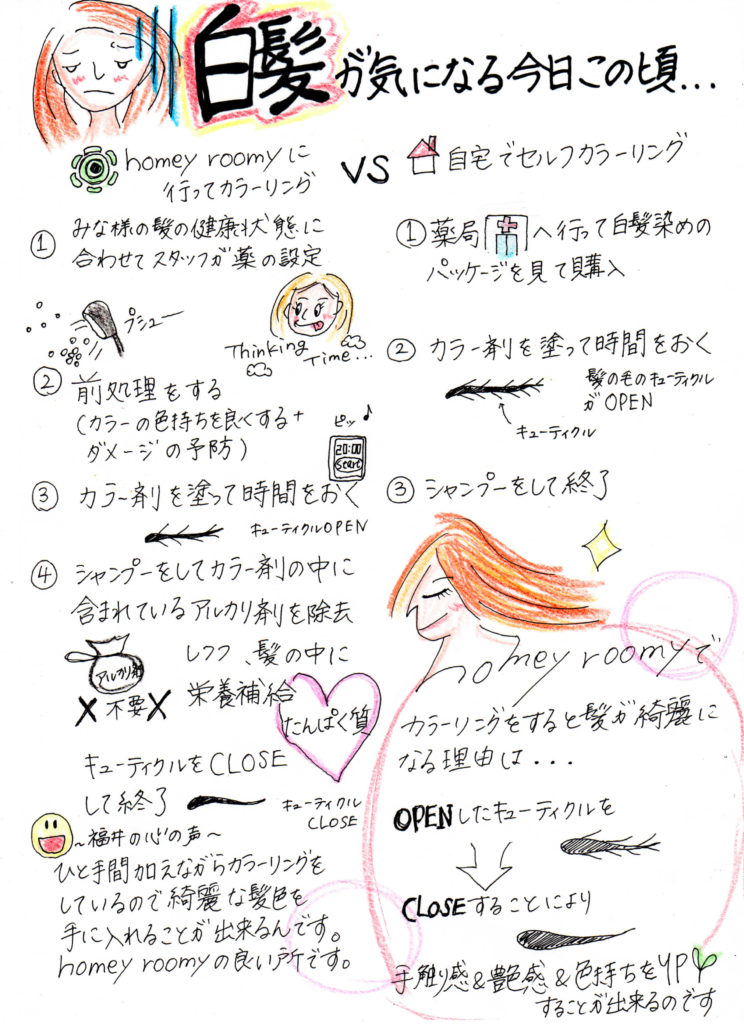 白髪が気になる今日この頃...
homey roomyに
行ってカラーリング
VS
自宅でセルフカラーリング
① みな様の髪の健康状態に
合わせてスタッフが薬の設定
プシュー
Thinking
Time...
② 前処理をする
(カラーの色持ちを良くする+
ダメージの予防)
ピッ♪
20:00
Start
③ カラー剤を塗って時間をおく
キューティクルOPEN
④ シャンプーをしてカラー剤の中に
含まれているアルカリ剤を除去
アルカリ剤
X 不要 X
しつつ、髪の中に
栄養補給
たんぱく質
キューティクルをCLOSE
して終了
キューティクル
CLOSE
～福井の心の声～
ひと手間加えながらカラーリングを
しているので綺麗な髪色を
手に入れることが出来るんです。
homey roomyの良い所です。
① 薬局へ行って白髪染めの
パッケージを見て購入
② カラー剤を塗って時間をおく
髪の毛のキューティクル
がOPEN
キューティクル
③ シャンプーをして終了
homey roomyで
カラーリングをすると髪が綺麗に
なる理由は...
OPENしたキューティクルを
CLOSEすることにより
手触り感&艶感&色持ちをUP
することが出来るのです